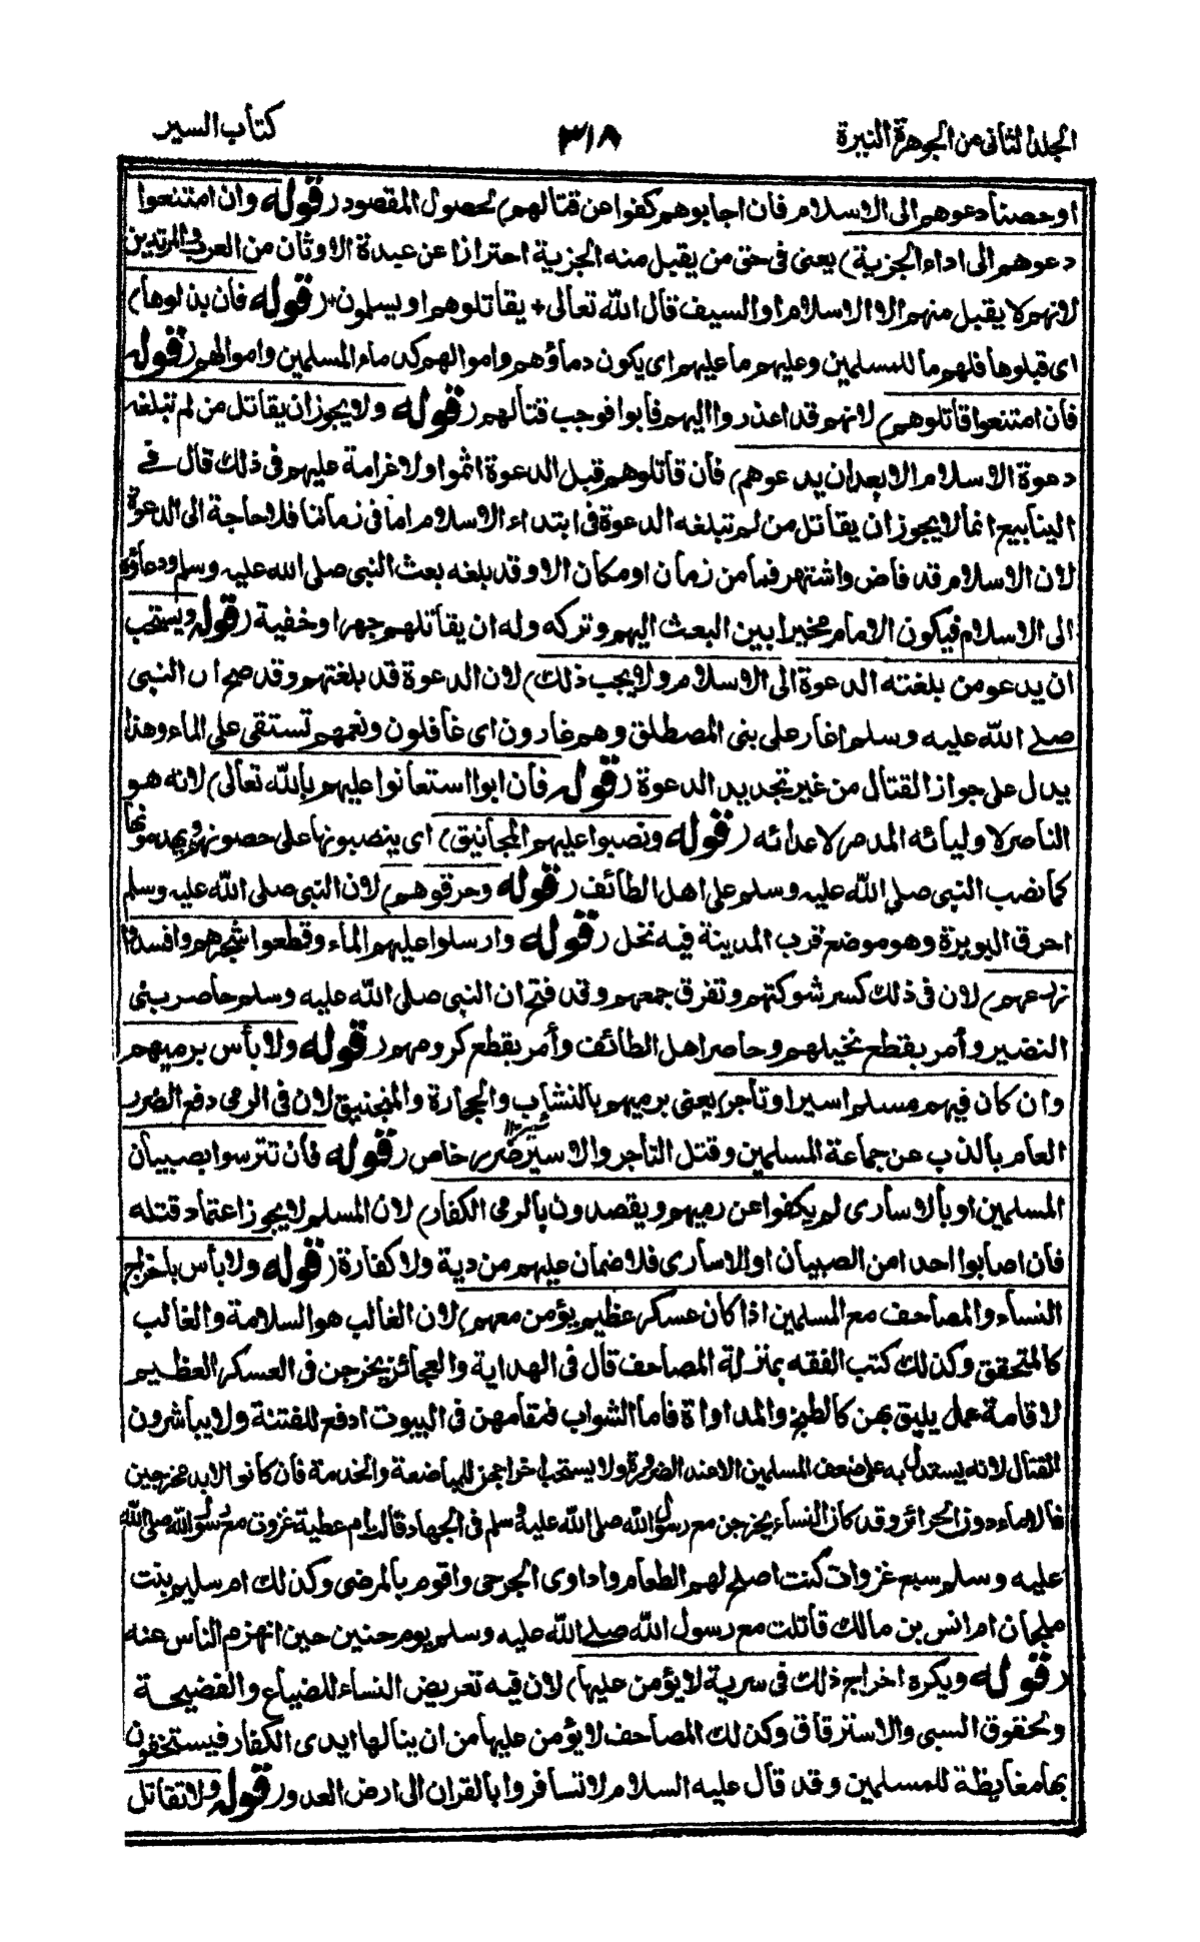 الجلد الثاني من الجوهرة النيرة
٣١٨
كتاب السير
او حصنا دعوهم الى الاسلام فان اجابوهم كفوا عن قتالهم) لحصول المقصود (قوله وان امتنعوا
دعوهم الى اداء الجزية) يعنى فى حق من يقبل منه الجزية احترازا عن عبدة الاوثان من العرب والمرتدين
لانهم لا يقبل منهم الا الاسلام او السيف قال الله تعالى + يقاتلوهم او يسلمون + (قوله فان بذلوها)
اى قبلوها فلهم ما للمسلمين وعليهم ما عليهم اى يكون دماؤهم واموالهم كدماء المسلمين واموالهم (قوله
فان امتنعوا قاتلوهم) لانهم قد اعذروا اليهم فابوا فوجب قتالهم (قوله ولا يجوز ان يقاتل من لم تبلغه
دعوة الاسلام الا بعد ان يدعوهم) فان قاتلوهم قبل الدعوة اثموا ولا غرامة عليهم فى ذلك قال فے
الينابيع انما لا يجوز ان يقاتل من لم تبلغه الدعوة فى ابتداء الاسلام اما فى زماننا فلا حاجة الى الدعوة
لان الاسلام قد فاض واشتهر فما من زمان او مكان الا وقد بلغه بعث النبى صلى الله عليه وسلم ودعاؤه
الى الاسلام فيكون الامام مخيرا بين البعث اليهم وتركه وله ان يقاتلهم جهرا وخفية (قوله ويستحب
ان يدعو من بلغته الدعوة الى الاسلام ولا يجب ذلك) لان الدعوة قد بلغتهم وقد صح ان النبى
صلے الله عليه وسلم اغار على بنى المصطلق وهم غارون اى غافلون ونعمهم تستقى على الماء وهذا
يدل على جواز القتال من غير تجديد الدعوة (قوله فان ابوا استعانوا عليهم بالله تعالى) لانه هو
الناصر لاوليائه المدمر لاعدائه (قوله ونصبوا عليهم المجانيق) اى ينصبونها على حصونهم ويهدمونها
كما نصب النبى صلى الله عليه وسلم على اهل الطائف (قوله وحرقوهم) لان النبى صلى الله عليه وسلم
احرق البويرة وهو موضع قرب المدينة فيه نخل (قوله وارسلوا عليهم الماء وقطعوا شجرهم وافسدوا
زرعهم) لان فى ذلك كسر شوكتهم وتفرق جمعهم وقد فتح ان النبى صلى الله عليه وسلم حاصر بنى
النضير وأمر بقطع نخيلهم وحاصر اهل الطائف وأمر بقطع كرومهم (قوله ولا بأس برميهم
وان كان فيهم مسلم اسير او تاجر) يعنى برميهم بالنشاب والحجارة والمنجنيق لان فى الرمى دفع الضرر
العام بالذب عن جماعة المسلمين وقتل التاجر والاسير ضرر خاص (قوله فان تترسوا بصبيان
المسلمين او بالاسارى لم يكفوا عن رميهم ويقصدون بالرمى الكفار) لان المسلم لا يجوز اعتماد قتله
فان اصابوا احدا من الصبيان او الاسارى فلا ضمان عليهم من دية ولا كفارة (قوله ولا بأس باخراج
النساء والمصاحف مع المسلمين اذا كان عسكر عظيم يؤمن معهم) لان الغالب هو السلامة والغالب
كالمتحقق وكذلك كتب الفقه بمنزلة المصاحف قال فى الهداية والعجائز يخرجن فى العسكر العظيم
لاقامة عمل يليق بهن كالطبخ والمداواة فاما الشواب فمقامهن فى البيوت ادفع للفتنة ولا يباشرون
القتال لانه يستدل به على ضعف المسلمين الا عند الضرورة ولا يستحب اخراجهن للمباضعة والخدمة فان كانوا لابد مخرجين
فالاماء دون الحرائر وقد كان النساء يخرجن مع رسول الله صلى الله عليه وسلم فى الجهاد قالت ام عطية غزوت مع رسول الله صلى الله
عليه وسلم سبع غزوات كنت اصلح لهم الطعام واداوى الجرحى واقوم بالمرضى وكذلك ام سليم بنت
ملحان ام انس بن مالك قاتلت مع رسول الله صلے الله عليه وسلم يوم حنين حين انهزم الناس عنه
(قوله ويكره اخراج ذلك فى سرية لا يؤمن عليها) لان فيه تعريض النساء للضياع والفضيحة
ولحقوق السبى والاسترقاق وكذلك المصاحف لا يؤمن عليها من ان ينالها ايدى الكفار فيستخفون
بها مغايظة للمسلمين وقد قال عليه السلام لا تسافروا بالقران الى ارض العدو (قوله ولا تقاتل